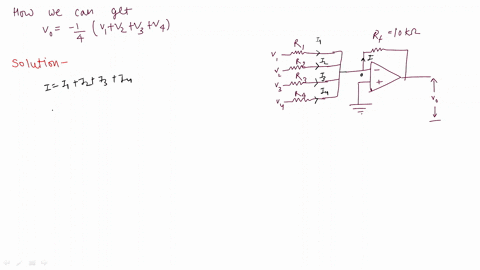 How we can get
V₀ = -1/4 (V₁+V₂+V₃+V₄)
Solution-
I = I₁+I₂+I₃+I₄
V₁ R₁ I₁
V₂ R₂ I₂
V₃ R₃ I₃
V₄ R₄ I₄
I
Rf = 10kΩ
-
+
V₀